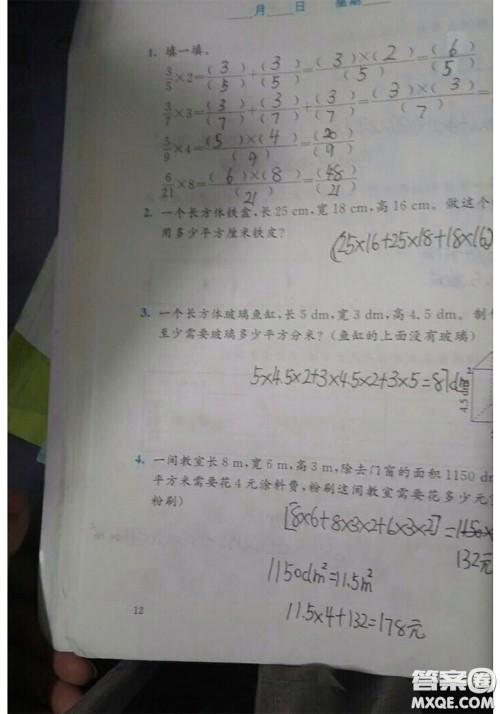 月 日 星期
1. 填一填。
3/5×2=(3)/(5)+(3)/(5)=(3)×(2)/(5)=(6)/(5)
3/7×3=(3)/(7)+(3)/(7)+(3)/(7)=(3)×(3)/(7)=
5/9×4=(5)×(4)/(9)=(20)/(9)
6/21×8=(6)×(8)/(21)=(48)/(21)
2. 一个长方体铁盒,长 25 cm,宽 18 cm,高 16 cm。做这个
用多少平方厘米铁皮?
(25×16+25×18+18×16)
3. 一个长方体玻璃鱼缸,长 5 dm,宽 3 dm,高 4.5 dm。制
至少需要玻璃多少平方分米?(鱼缸的上面没有玻璃)
5×4.5×2+3×4.5×2+3×5=87dm²
4.5 dm
4. 一间教室长 8 m,宽 6 m,高 3 m,除去门窗的面积 1150 dm
平方米需要花 4 元涂料费,粉刷这间教室需要花多少元
粉刷)
[8×6+8×3×2+6×3×2]=1150×
132元
1150dm²=11.5m²
11.5×4+132=178元
12
答案圈
MXQE.COM